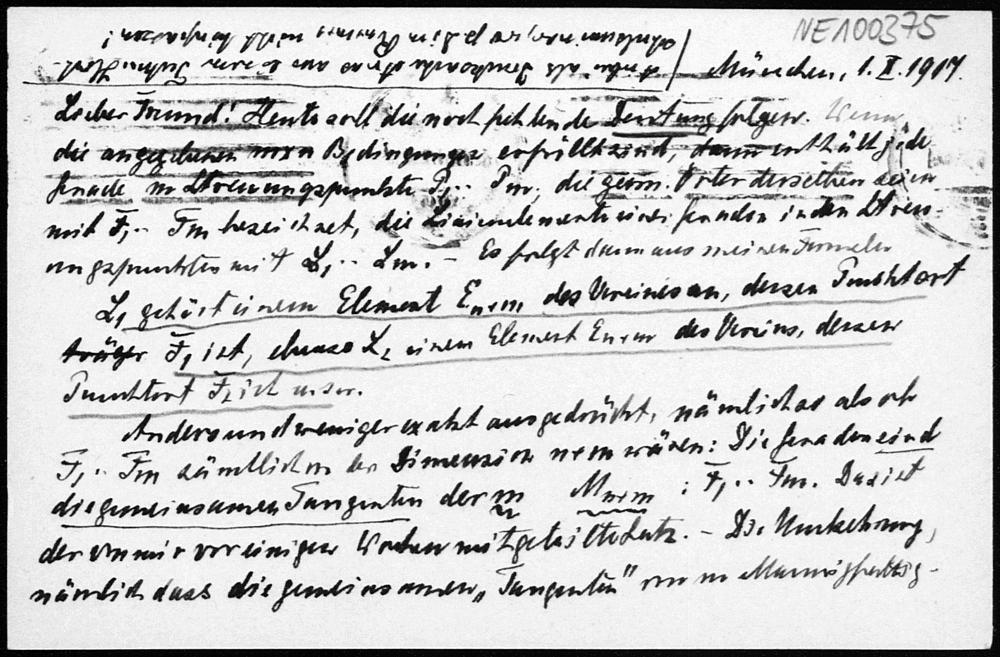 NE100375
München, 1. II. 1917.
Lieber Freund! Heute soll die noch fehlende Deutung folgen. Wenn
die angegebenen Bedingungen erfüllt sind, dann enthält jede
Gerade m Streuungspunkte P₁.. Pm, die geom. Örter derselben seien
mit F₁.. Fm bezeichnet, die Linienelemente einer Geraden in den Streu-
ungspunkten mit L₁ .. Lm. – Es folgt dann aus meinen Formeln
L₁ gehört einem Element En-m des Vereines an, dessen Punktort
F₁ ist, ebenso L₂ einem Element En-m des Vereins, dessen
Punktort F₂ ist usw.
Anders und weniger exakt ausgedrückt, nämlich so als ob
F₁.. Fm sämtlich von der Dimension n-m wären: Die Geraden sind
die gemeinsamen Tangenten der m Mn-m : F₁.. Fm. Das ist
der von mir vor einigen Wochen mitgeteilte Satz. – Die Umkehrung,
nämlich dass die gemeinsamen „Tangenten" von m Mannigfaltig-